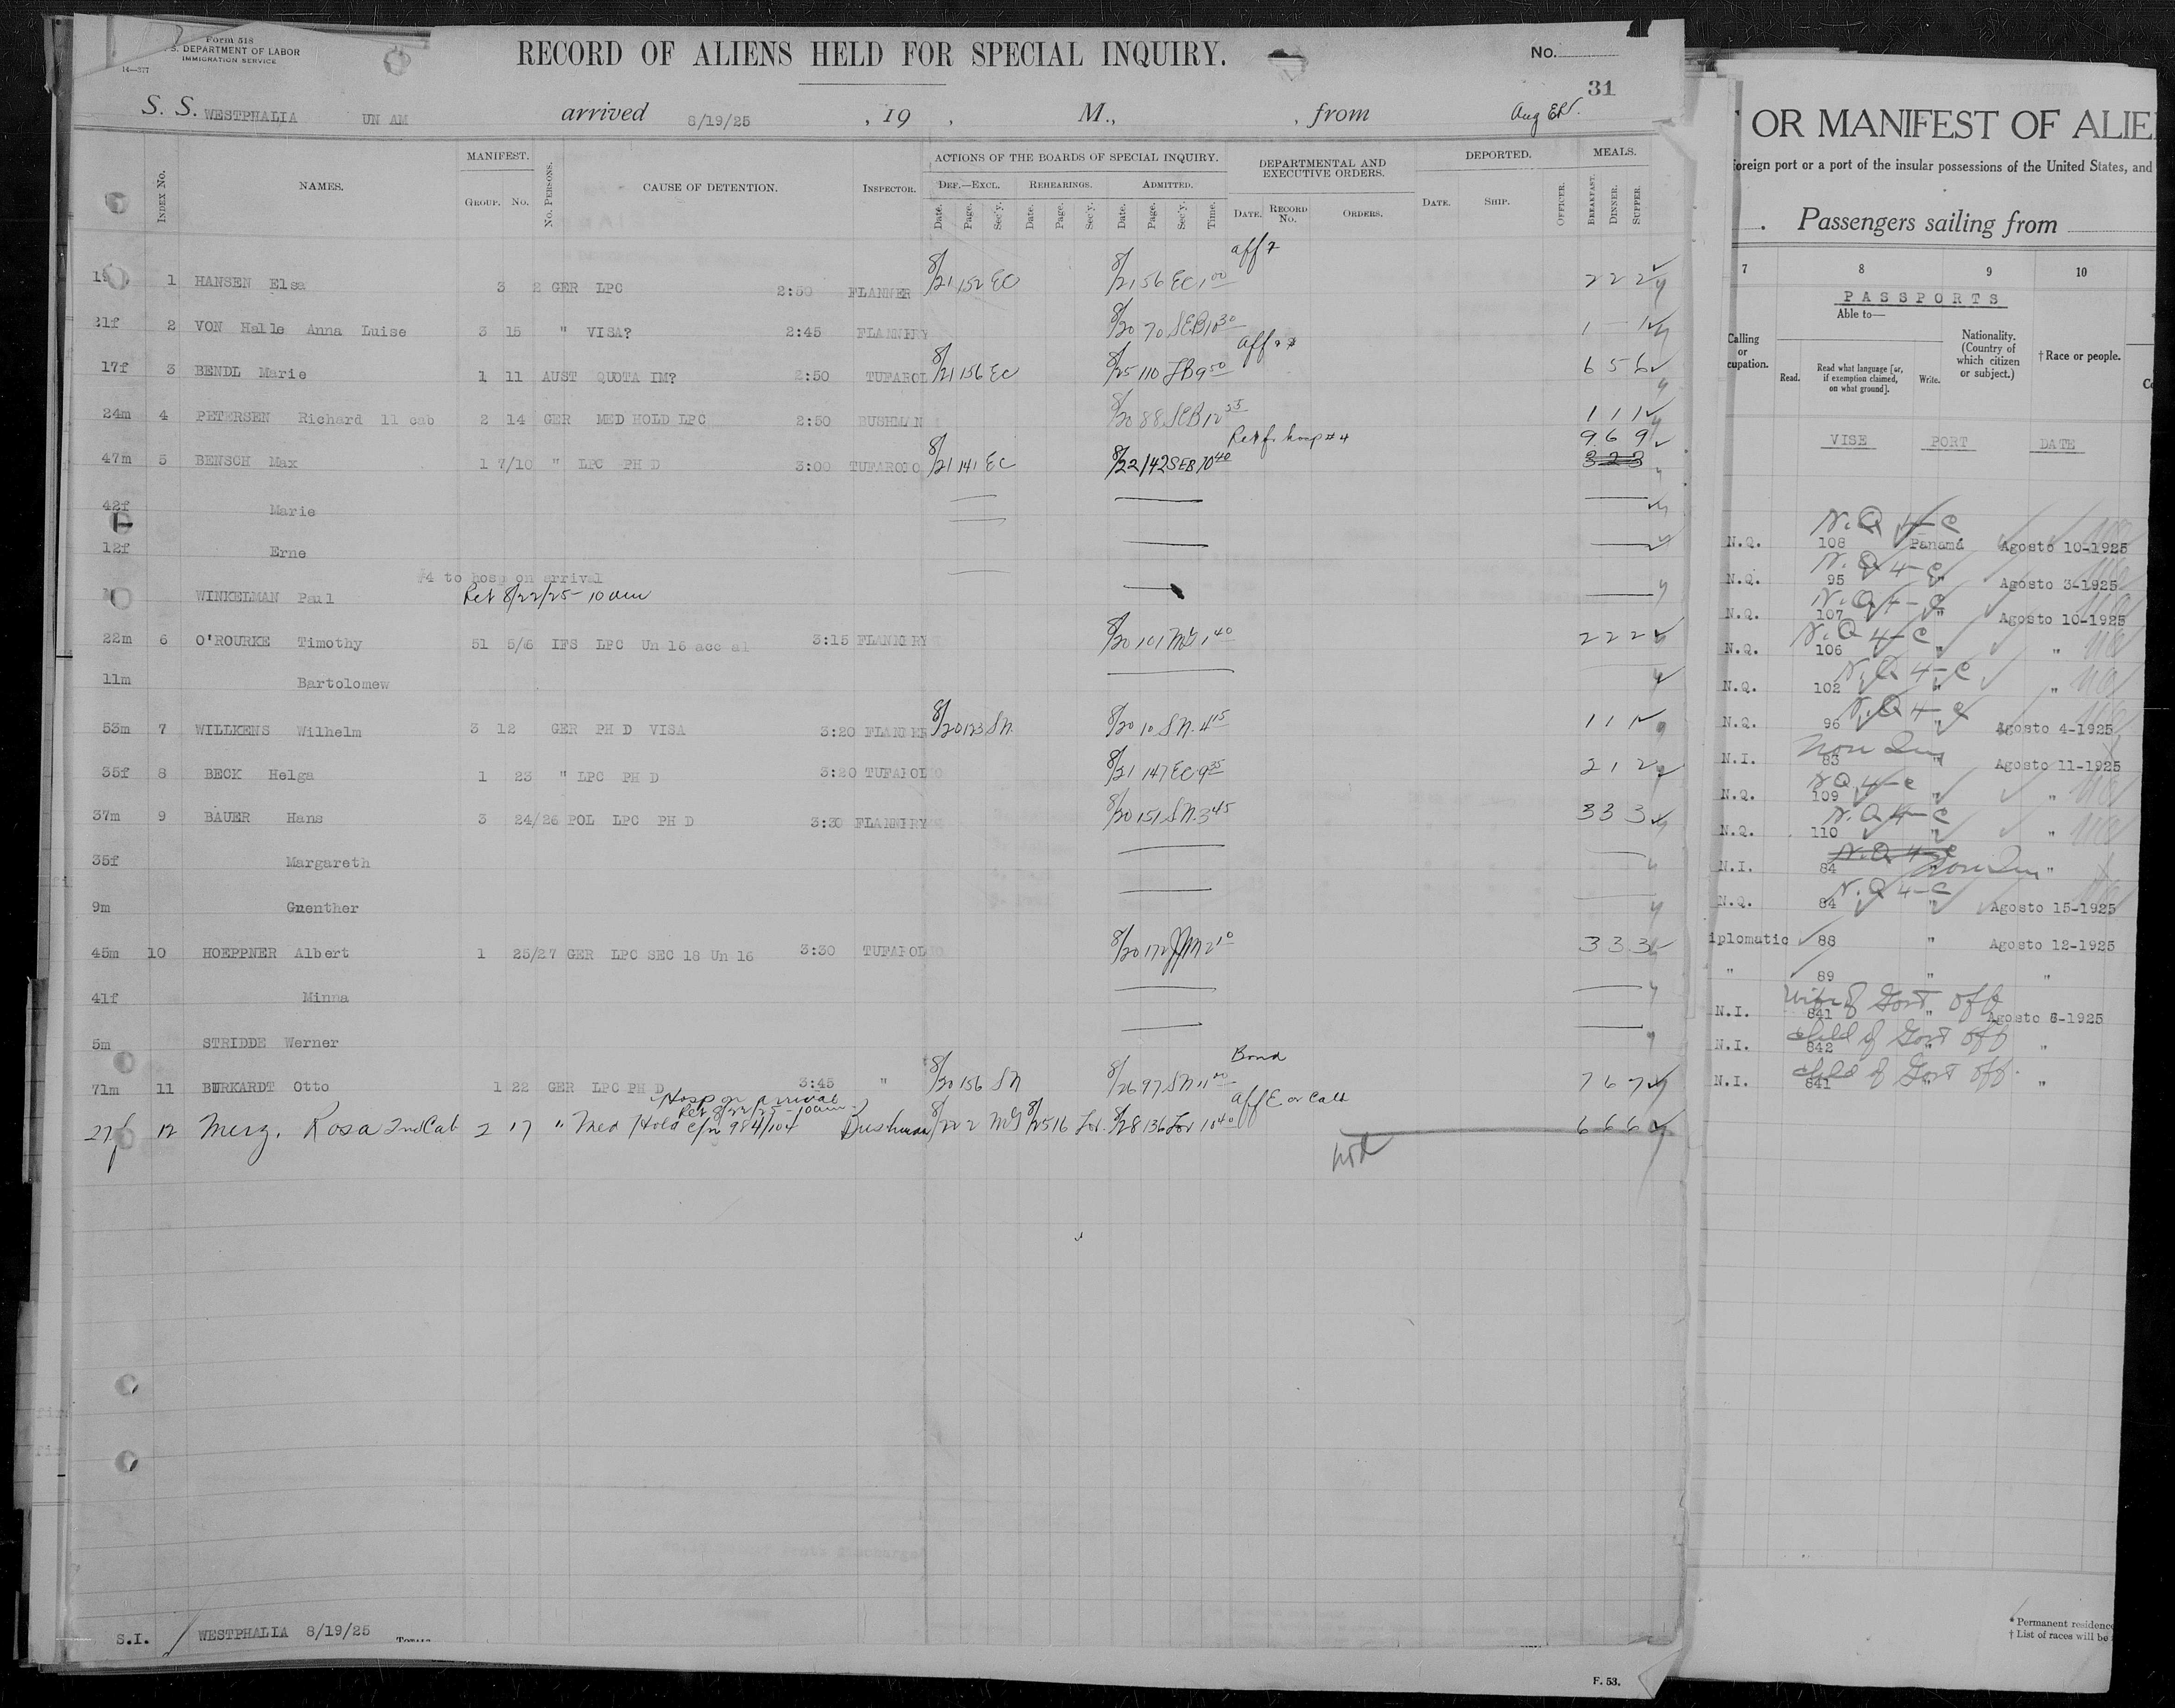 Form 518
S. DEPARTMENT OF LABOR
IMMIGRATION SERVICE
14—377
RECORD OF ALIENS HELD FOR SPECIAL INQUIRY.
No.
31
S. S. WESTPHALIA UN AM arrived 8/19/25 , 19 , M., , from Aug
INDEX No. NAMES. MANIFEST. GROUP. No. No. PERSONS. CAUSE OF DETENTION. INSPECTOR. ACTIONS OF THE BOARDS OF SPECIAL INQUIRY. DEPARTMENTAL AND EXECUTIVE ORDERS. DEPORTED. MEALS.
DEF.—EXCL. REHEARINGS. ADMITTED.
Date. Page. Sec'y. Date. Page. Sec'y. Date. Page. Sec'y. Time. DATE. RECORD No. ORDERS. DATE. SHIP. OFFICER. BREAKFAST. DINNER. SUPPER.
aff
1 HANSEN Elsa 3 2 GER LPC 2:50 FLANNER 8/21 152 EC 8/21 56 EC 1 00 2 2 2
21f 2 VON Halle Anna Luise 3 15 " VISA? 2:45 FLANNERY 8/20 70 SEB 10 30 1 — 1
aff
17f 3 BENDL Marie 1 11 AUST QUOTA IM? 2:50 TUFAROL 8/21 156 EC 8/25 110 9 50 6 5 6
24m 4 PETERSEN Richard 11 cab 2 14 GER MED HOLD LPC 2:50 BUSHMAN 8/20 88 SEB 12 1 1 1
Ret fr hosp #4 9 6 9
47m 5 BENSCH Max 1 7/10 " LPC PH D 3:00 TUFAROLO 8/21 141 EC 8/22 142 SEB 10 40 3 2 3
42f Marie
12f Erne
#4 to hosp on arrival
WINKELMAN Paul Ret 8/22/25 - 10 am
22m 6 O'ROURKE Timothy 51 5/6 IFS LPC Un 16 acc al 3:15 FLANNERY 8/20 101 1 40 2 2 2
11m Bartolomew
53m 7 WILLKENS Wilhelm 3 12 GER PH D VISA 3:20 FLANNER 8/20 123 SN 8/20 10 SN 4 15 1 1 1
35f 8 BECK Helga 1 23 " LPC PH D 3:20 TUFAROLO 8/21 147 EC 9 35 2 1 2
37m 9 BAUER Hans 3 24/26 POL LPC PH D 3:30 FLANNERY 8/20 151 SN 3 45 3 3 3
35f Margareth
9m Guenther
45m 10 HOEPPNER Albert 1 25/27 GER LPC SEC 18 Un 16 3:30 TUFAROLO 8/20 172 2 10 3 3 3
41f Minna
5m STRIDDE Werner
Bond
71m 11 BURKARDT Otto 1 22 GER LPC PH D 3:45 " 8/20 156 SN 8/26 97 SN 11 00 7 6 7
Hosp on arrival
Ret 8/22/25 - 10 am
27f 12 Merz, Rosa 2nd Cab 2 17 " Med Hold 984/104 Bushman 8/22 2 8/25 16 8/28 136 10 40 6 6 6
S.I. WESTPHALIA 8/19/25 TOTALS
F. 53.
OR MANIFEST OF ALIE
foreign port or a port of the insular possessions of the United States, and
Passengers sailing from
7 8 9 10
PASSPORTS
Calling or cupation. Able to— Read. Read what language [or, if exemption claimed, on what ground]. Write. Nationality. (Country of which citizen or subject.) †Race or people.
VISE PORT DATE
N.Q 4-C
N.Q. 108 Panamá Agosto 10-1925
N.Q 4-C
N.Q. 95 " Agosto 3-1925
N.Q 4-C
N.Q. 107 " Agosto 10-1925
N.Q 4-C
N.Q. 106 " "
N.Q 4-C
N.Q. 102 " "
N.Q 4-C
N.Q. 96 " Agosto 4-1925
Non Im
N.I. 83 " Agosto 11-1925
N.Q 4-C
N.Q. 109 " "
N.Q 4-C
N.Q. 110 " "
N.Q 4-C
N.I. 84 Non Im "
N.Q 4-C
N.Q. 84 " Agosto 15-1925
iplomatic 88 " Agosto 12-1925
" 89 " "
Wife of Govt off
N.I. 841 " Agosto 6-1925
child of Govt off
N.I. 842 " "
child of Govt off.
N.I. 841 " "
* Permanent residence
† List of races will be